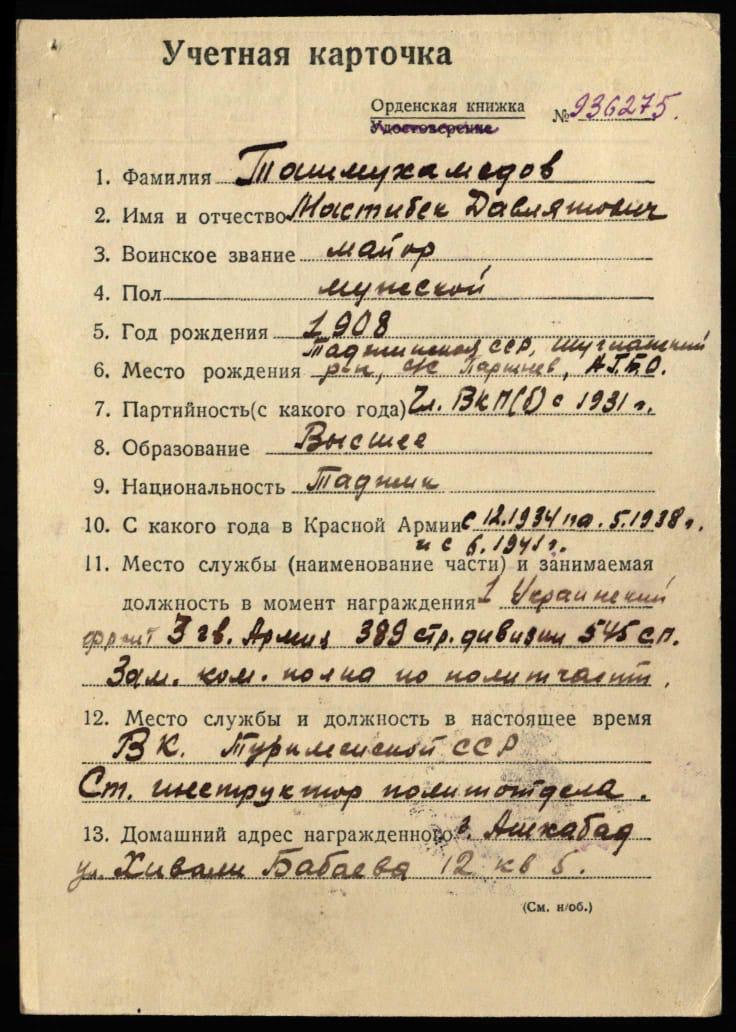 Учетная карточка
Орденская книжка
Удостоверение
№ 936275.
1. Фамилия Ташмухамедов
2. Имя и отчество Мастибек Давлятович
3. Воинское звание майор
4. Пол мужской
5. Год рождения 1908
Таджикская ССР, Шугнанский
6. Место рождения р-н, с/с Паршнев, А.Г.Б.О.
7. Партийность(с какого года) Чл. ВКП(б) с 1931 г.
8. Образование Высшее
9. Национальность Таджик
10. С какого года в Красной Армии с 12.1934 по .5.1938 г.
и с 6.1941 г.
11. Место службы (наименование части) и занимаемая
должность в момент награждения 1 Украинский
фронт 3 гв. Армия 389 стр. дивизии 545 с.п.
Зам. ком. полка по политчасти.
12. Место службы и должность в настоящее время
ВК. Туркменской ССР
Ст. инструктор политотдела.
13. Домашний адрес награжденного г. Ашхабад
ул. Хивали Бабаева 12 кв 5.
(См. н/об.)